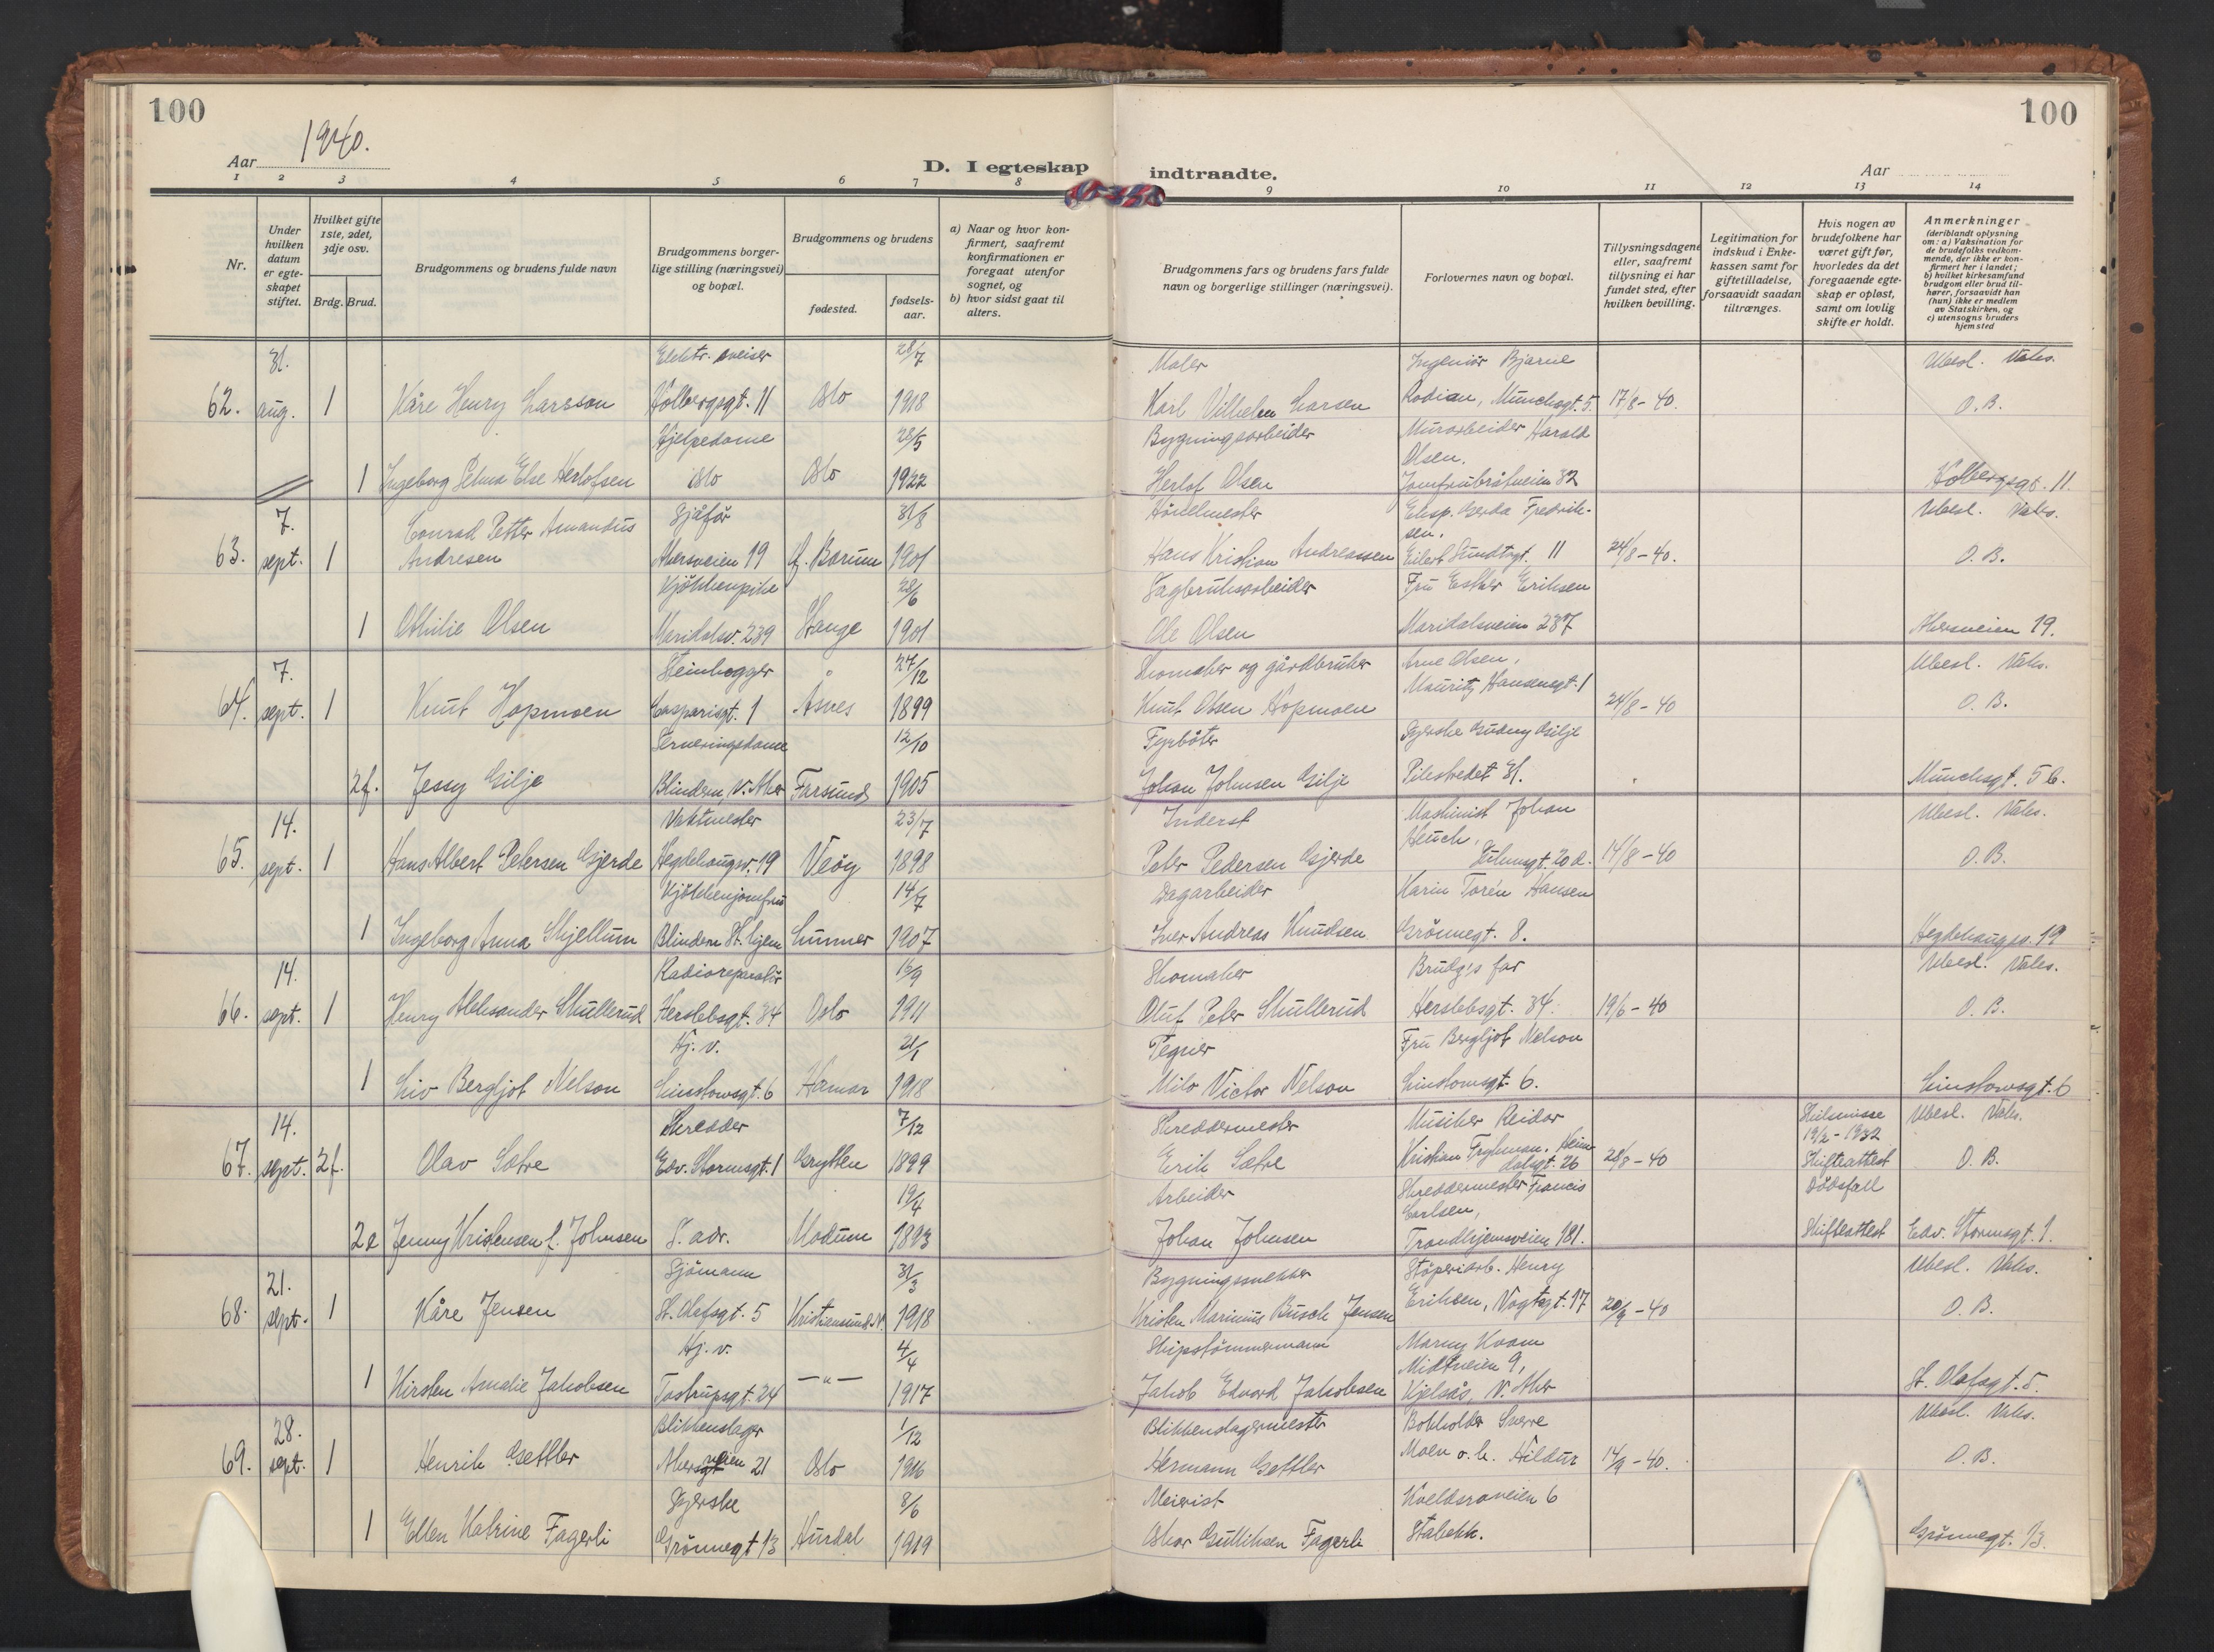 100
100
Aar 1940.
D. I egteskap indtraadte.
Aar
1 2 3 4 5 6 7 8 9 10 11 12 13 14
Nr.
Under hvilken datum er egteskapet stiftet.
Hvilket gifte 1ste, 2det, 3dje osv.
Brdg. Brud.
Brudgommens og brudens fulde navn
Brudgommens borgerlige stilling (næringsvei) og bopæl.
Brudgommens og brudens
fødested.
fødselsaar.
a) Naar og hvor konfirmert, saafremt konfirmationen er foregaat utenfor sognet, og
b) hvor sidst gaat til alters.
Brudgommens fars og brudens fars fulde navn og borgerlige stillinger (næringsvei).
Forlovernes navn og bopæl.
Tillysningsdagene eller, saafremt tillysning ei har fundet sted, efter hvilken bevilling.
Legitimation for indskud i Enkekassen samt for giftetilladelse, forsaavidt saadan tiltrænges.
Hvis nogen av brudefolkene har været gift før, hvorledes da det foregaaende egteskap er opløst, samt om lovlig skifte er holdt.
Anmerkninger (deriblandt oplysning om: a) Vaksination for de brudefolks vedkommende, der ikke er konfirmert her i landet; b) hvilket kirkesamfund brudgom eller brud tilhører, forsaavidt han (hun) ikke er medlem av Statskirken, og c) utensogns bruders hjemsted
31. Elektr. sveiser 28/7 Maler Ingeniør Bjarne Ubesl. Vaks.
62. aug. 1 Kåre Henry Larsson Holbergsgt. 11 Oslo 1918 Karl Vilhelm Larsen Rodian, Munchsgt. 5. 17/8-40. O.B.
Hjelpedame 28/5 Bygningsarbeider Murarbeider Harald Olsen.
1 Ingeborg Selma Else Herlofsen Oslo Oslo 1922 Herlof Olsen Jomfrubråtveien 32 Holbergsgt. 11.
7. Conrad Petter Amandus Sjåfør 31/8 Eksp. Gerda Fredriksen. Ubesl. Vaks.
63. sept. 1 Andresen Akersveien 19 Ø. Bærum 1901 Hans Kristian Andreassen Eilert Sundtsgt. 11 24/8-40. O.B.
Kjøkkenpike 28/6 Sagbruksarbeider Fru Esther Eriksen
1 Othilie Olsen Maridalsv. 239 Stange 1901 Ole Olsen Maridalsveien 237 Akersveien 19.
7. Steinhogger 27/12 Skomaker og gårdbruker Arne Olsen, Ubesl. Vaks.
64. sept. 1 Knut Hopmoen Casparisgt. 1 Åsnes 1899 Knut Olsen Hopmoen Mauritz Hansensgt. 1 24/8-40 O.B.
Serveringsdame 12/10 Fyrbøter Syerske Gudny Gilje
2f. Jessy Gilje Blindern, V. Aker Farsund 1905 Johan Johnsen Gilje Pilestredet 31. Munchsgt. 5b.
14. Vaktmester 23/7 Inderst Maskinist Johan Ubesl. Vaks.
65. sept. 1 Hans Albert Petersen Gjerde Hegdehaugsv. 19 Veøy 1898 Peter Pedersen Gjerde Heuch, 20 d. 14/8-40 O.B.
Kjøkkenjomfru 14/7 Dagarbeider Karin Torén Hansen
1 Ingeborg Anna Skjellum Blindern St. hjem Lunner 1907 Iver Andreas Knudsen Grønnegt. 8. Hegdehaugsv. 19
14. Radioreparatør 15/9 Skomaker Brudg's far Ubesl. Vaks.
66. sept. 1 Henry Aleksander Skullerud Herslebsgt. 34 Oslo 1911 Oluf Peter Skullerud Herslebsgt. 34. 19/6-40 O.B.
Hj. v. 21/1 Tegner Fru Bergljot Nelson
1 Liv Bergljot Nelson Linstowsgt. 6 Hamar 1918 Milo Victor Nelson Linstowsgt. 6. Linstowsgt. 6
14. Skredder 7/12 Skreddermester Musiker Reidar Skilsmisse 19/2-1932 Ubesl. Vaks.
67. sept. 2f. Olav Sætre Edv. Stormsgt. 1 Grytten 1899 Erik Sætre Kristian Fryhman, Heimdalsgt. 26 28/8-40 Skifteattest O.B.
19/4 Arbeider Skreddermester Francis Carlsen, Dødsfall
2e Jenny Kristensen f. Johnsen S. adr. Modum 1893 Johan Johnsen Trondhjemsveien 181. Skifteattest Edv. Stormsgt. 1.
21. Sjømann 31/3 Bygningssnekker Støperiarb. Henry Ubesl. Vaks.
68. sept. 1 Kåre Jensen St. Olafsgt. 5 Kristiansund N. 1918 Kristen Marinius Busch Jensen Eriksen, Vogtsgt. 17 20/9-40 O.B.
Hj. v. 4/4 Skipstømmermann Marny Kvam
1 Kirsten Amalie Jakobsen Tostrupsgt. 24 —"— 1917 Jakob Edvard Jakobsen Midtveien 9, Kjelsås, V. Aker St. Olafsgt. 5.
28. Blikkenslager 1/12 Blikkenslagermester Bokholder Sverre Ubesl. Vaks.
69. sept. 1 Henrik Gettler Akersveien 21 Oslo 1916 Hermann Gettler Moen o.h. Hildur 14/9-40. O.B.
Syerske 8/6 Meierist Kveldsroveien 6
1 Ellen Katrine Fagerli Grønnegt 13 Hurdal 1919 Oskar Gulliksen Fagerli Stabekk. Grønnegt. 13.